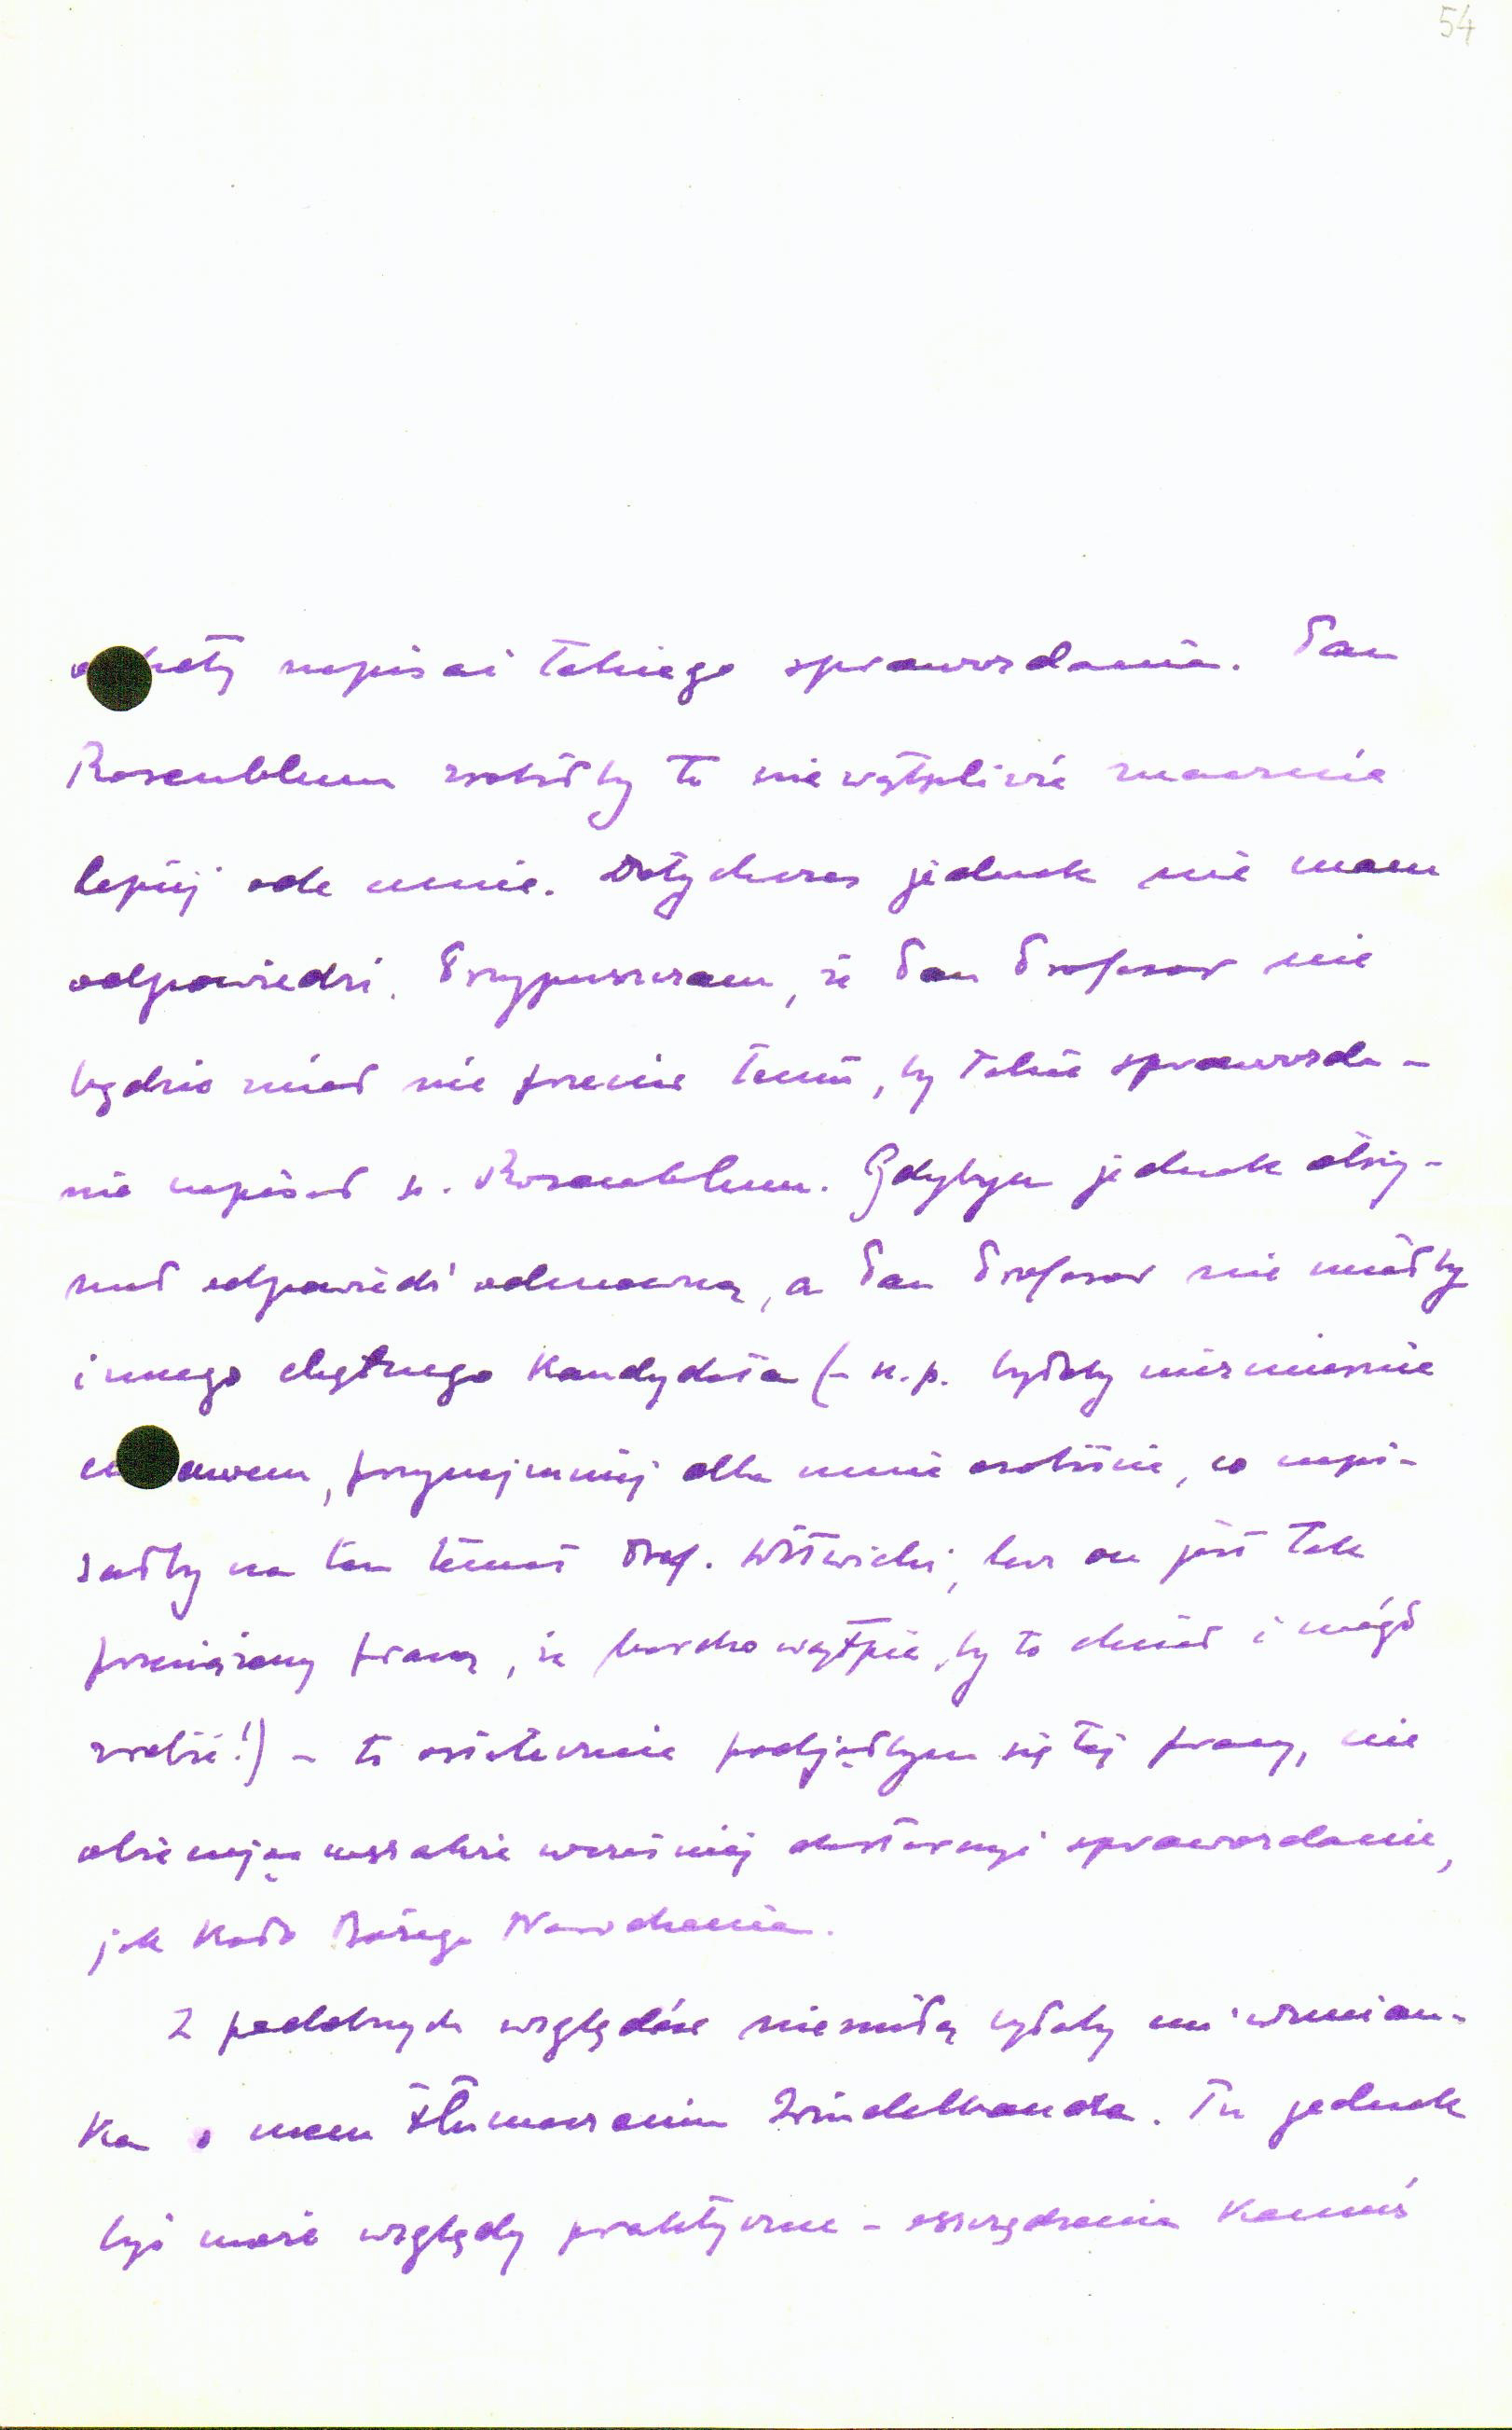 54
ochoty napisać takiego sprawozdania. Pan
Rosenblum zrobiłby to niewątpliwie znacznie
lepiej ode mnie. Dotychczas jednak nie mam
odpowiedzi. Przypuszczam, że Pan Profesor nie
będzie miał nic przeciw temu, by takie sprawozda-
nie napisał p. Rosenblum. Gdybym jednak otrzy-
mał odpowiedź odmowną, a Pan Profesor nie miałby
innego chętnego kandydata (– n.p. byłoby niezmiernie
ciekawem, przynajmniej dla mnie osobiście, co napi-
sałby na ten temat Prof. Witwicki, lecz on jest tak
przeciążony pracą, że bardzo wątpię, by to chciał i mógł
zrobić!) – to ostatecznie podjąłbym się tej pracy, nie
obiecując wszakże wcześniej dostarczyć sprawozdanie,
jak koło Bożego Narodzenia.
Z podobnych względów niemiłą byłaby mi wzmian-
ka o mem tłumaczeniu Windelbanda. Tu jednak
być może względy praktyczne – oszczędzenia komuś